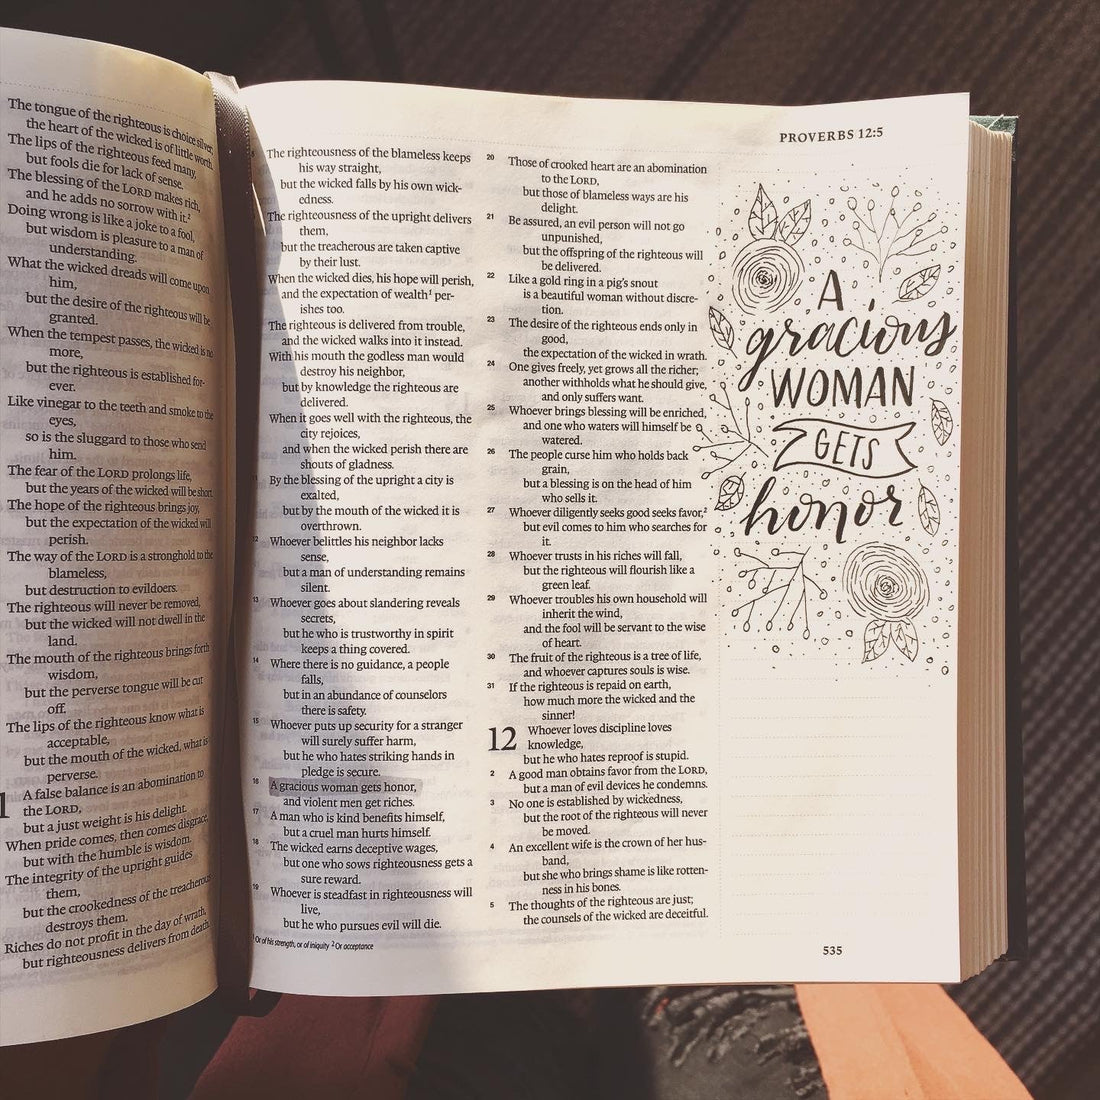 The tongue of the righteous is choice silver;
the heart of the wicked is of little worth.
The lips of the righteous feed many,
but fools die for lack of sense.
The blessing of the LORD makes rich,
and he adds no sorrow with it.²
Doing wrong is like a joke to a fool,
but wisdom is pleasure to a man of
understanding.
What the wicked dreads will come upon
him,
but the desire of the righteous will be
granted.
When the tempest passes, the wicked is no
more,
but the righteous is established for-
ever.
Like vinegar to the teeth and smoke to the
eyes,
so is the sluggard to those who send
him.
The fear of the LORD prolongs life,
but the years of the wicked will be short.
The hope of the righteous brings joy,
but the expectation of the wicked will
perish.
The way of the LORD is a stronghold to the
blameless,
but destruction to evildoers.
The righteous will never be removed,
but the wicked will not dwell in the
land.
The mouth of the righteous brings forth
wisdom,
but the perverse tongue will be cut
off.
The lips of the righteous know what is
acceptable,
but the mouth of the wicked, what is
perverse.
A false balance is an abomination to
the LORD,
but a just weight is his delight.
When pride comes, then comes disgrace,
but with the humble is wisdom.
The integrity of the upright guides
them,
but the crookedness of the treacherous
destroys them.
Riches do not profit in the day of wrath,
but righteousness delivers from death.
The righteousness of the blameless keeps
his way straight,
but the wicked falls by his own wick-
edness.
The righteousness of the upright delivers
them,
but the treacherous are taken captive
by their lust.
When the wicked dies, his hope will perish,
and the expectation of wealth¹ per-
ishes too.
The righteous is delivered from trouble,
and the wicked walks into it instead.
With his mouth the godless man would
destroy his neighbor,
but by knowledge the righteous are
delivered.
When it goes well with the righteous, the
city rejoices,
and when the wicked perish there are
shouts of gladness.
11 By the blessing of the upright a city is
exalted,
but by the mouth of the wicked it is
overthrown.
12 Whoever belittles his neighbor lacks
sense,
but a man of understanding remains
silent.
13 Whoever goes about slandering reveals
secrets,
but he who is trustworthy in spirit
keeps a thing covered.
14 Where there is no guidance, a people
falls,
but in an abundance of counselors
there is safety.
15 Whoever puts up security for a stranger
will surely suffer harm,
but he who hates striking hands in
pledge is secure.
16 A gracious woman gets honor,
and violent men get riches.
17 A man who is kind benefits himself,
but a cruel man hurts himself.
18 The wicked earns deceptive wages,
but one who sows righteousness gets a
sure reward.
19 Whoever is steadfast in righteousness will
live,
but he who pursues evil will die.
¹ Or of his strength, or of iniquity ² Or acceptance
PROVERBS 12:5
20 Those of crooked heart are an abomination
to the LORD,
but those of blameless ways are his
delight.
21 Be assured, an evil person will not go
unpunished,
but the offspring of the righteous will
be delivered.
22 Like a gold ring in a pig's snout
is a beautiful woman without discre-
tion.
23 The desire of the righteous ends only in
good,
the expectation of the wicked in wrath.
24 One gives freely, yet grows all the richer;
another withholds what he should give,
and only suffers want.
25 Whoever brings blessing will be enriched,
and one who waters will himself be
watered.
26 The people curse him who holds back
grain,
but a blessing is on the head of him
who sells it.
27 Whoever diligently seeks good seeks favor,²
but evil comes to him who searches for
it.
28 Whoever trusts in his riches will fall,
but the righteous will flourish like a
green leaf.
29 Whoever troubles his own household will
inherit the wind,
and the fool will be servant to the wise
of heart.
30 The fruit of the righteous is a tree of life,
and whoever captures souls is wise.
31 If the righteous is repaid on earth,
how much more the wicked and the
sinner!
12 Whoever loves discipline loves
knowledge,
but he who hates reproof is stupid.
2 A good man obtains favor from the LORD,
but a man of evil devices he condemns.
3 No one is established by wickedness,
but the root of the righteous will never
be moved.
4 An excellent wife is the crown of her hus-
band,
but she who brings shame is like rotten-
ness in his bones.
5 The thoughts of the righteous are just;
the counsels of the wicked are deceitful.
A
gracious
WOMAN
GETS
honor
535